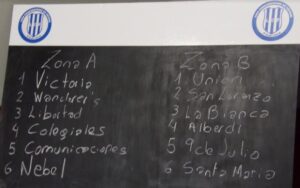 Zona A
1 Victoria
2 Wanderer's
3 Libertad
4 Colegiales
5 Comunicaciones
6 Nebel
Zona B
1 Union
2 San Lorenzo
3 La Blanca
4 Alberdi
5 9 de Julio
6 Santa Maria